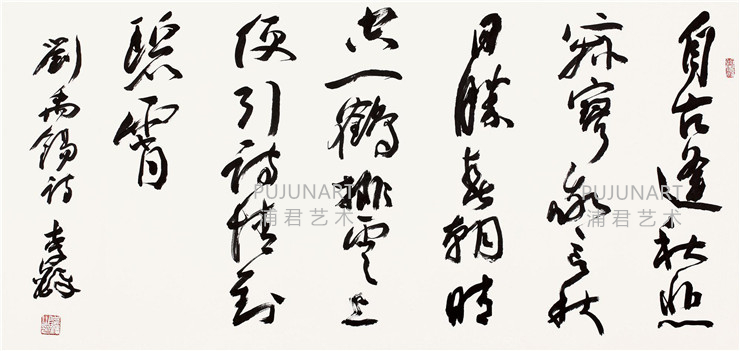 自古逢秋悲
寂寥我言秋
日勝春朝晴
空一鶴排雲上
便引詩情到
碧霄
劉禹錫詩 李鐸
PUJUNART
浦君艺术
PUJUNART
浦君艺术